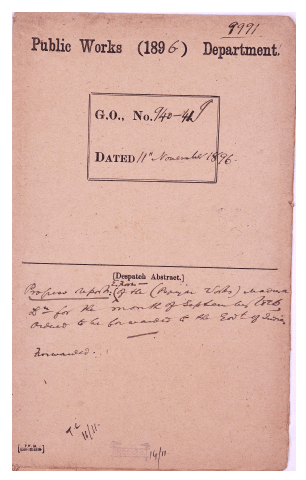 9991
Public Works (1896) Department.
G.O., No. 940-42
DATED 11th November 1896.
[Despatch Abstract.]
Progress report of the (Periyar Works) Madura
Dn for the month of September 1896,
ordered to be forwarded to the Govt of India.
Forwarded.
14/11